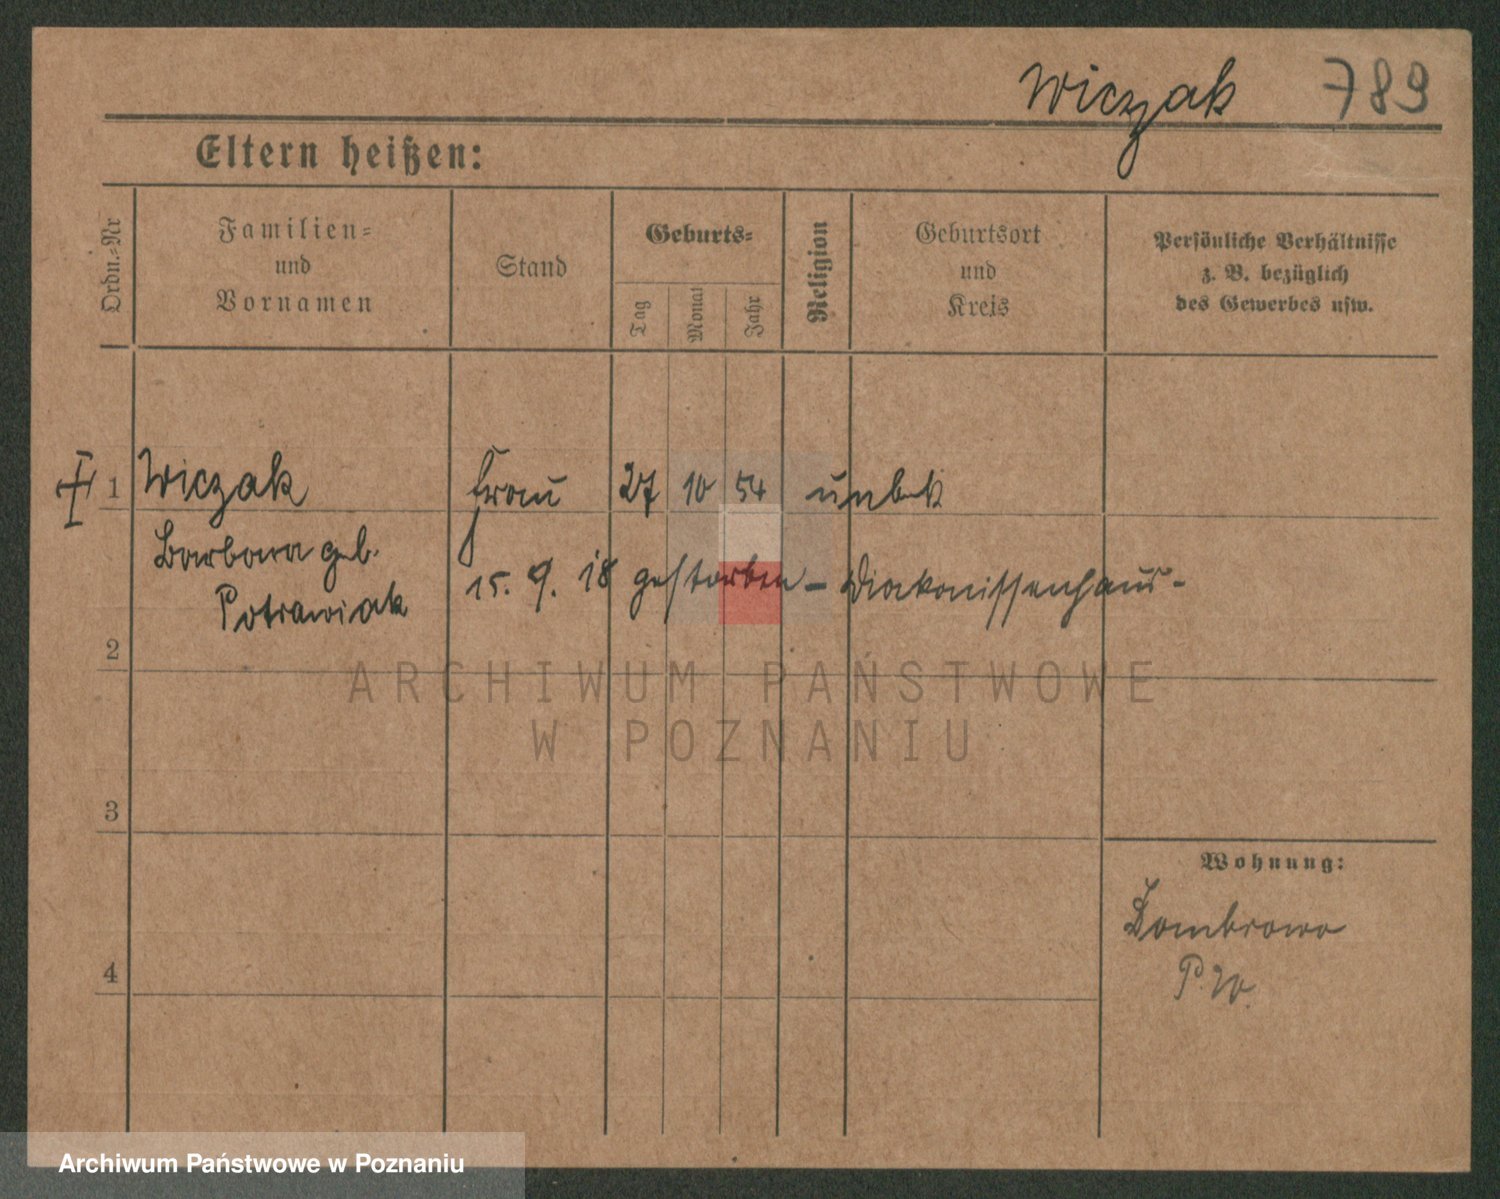 Wiczak 789
Eltern heißen:
Ordn.-Nr
Familien-
und
Vornamen
Stand
Geburts-
Tag
Monat
Jahr
Religion
Geburtsort
und
Kreis
Persönliche Verhältnisse
z. B. bezüglich
des Gewerbes usw.
1 Wiczak Frau 27 10 54 unbek
Barbara geb.
Potrawiak
15. 9. 18 gestorben - Diakonissenhaus -
2
3
4
Wohnung:
Dombrowo
P. W.
ARCHIWUM PAŃSTWOWE
W POZNANIU
Archiwum Państwowe w Poznaniu